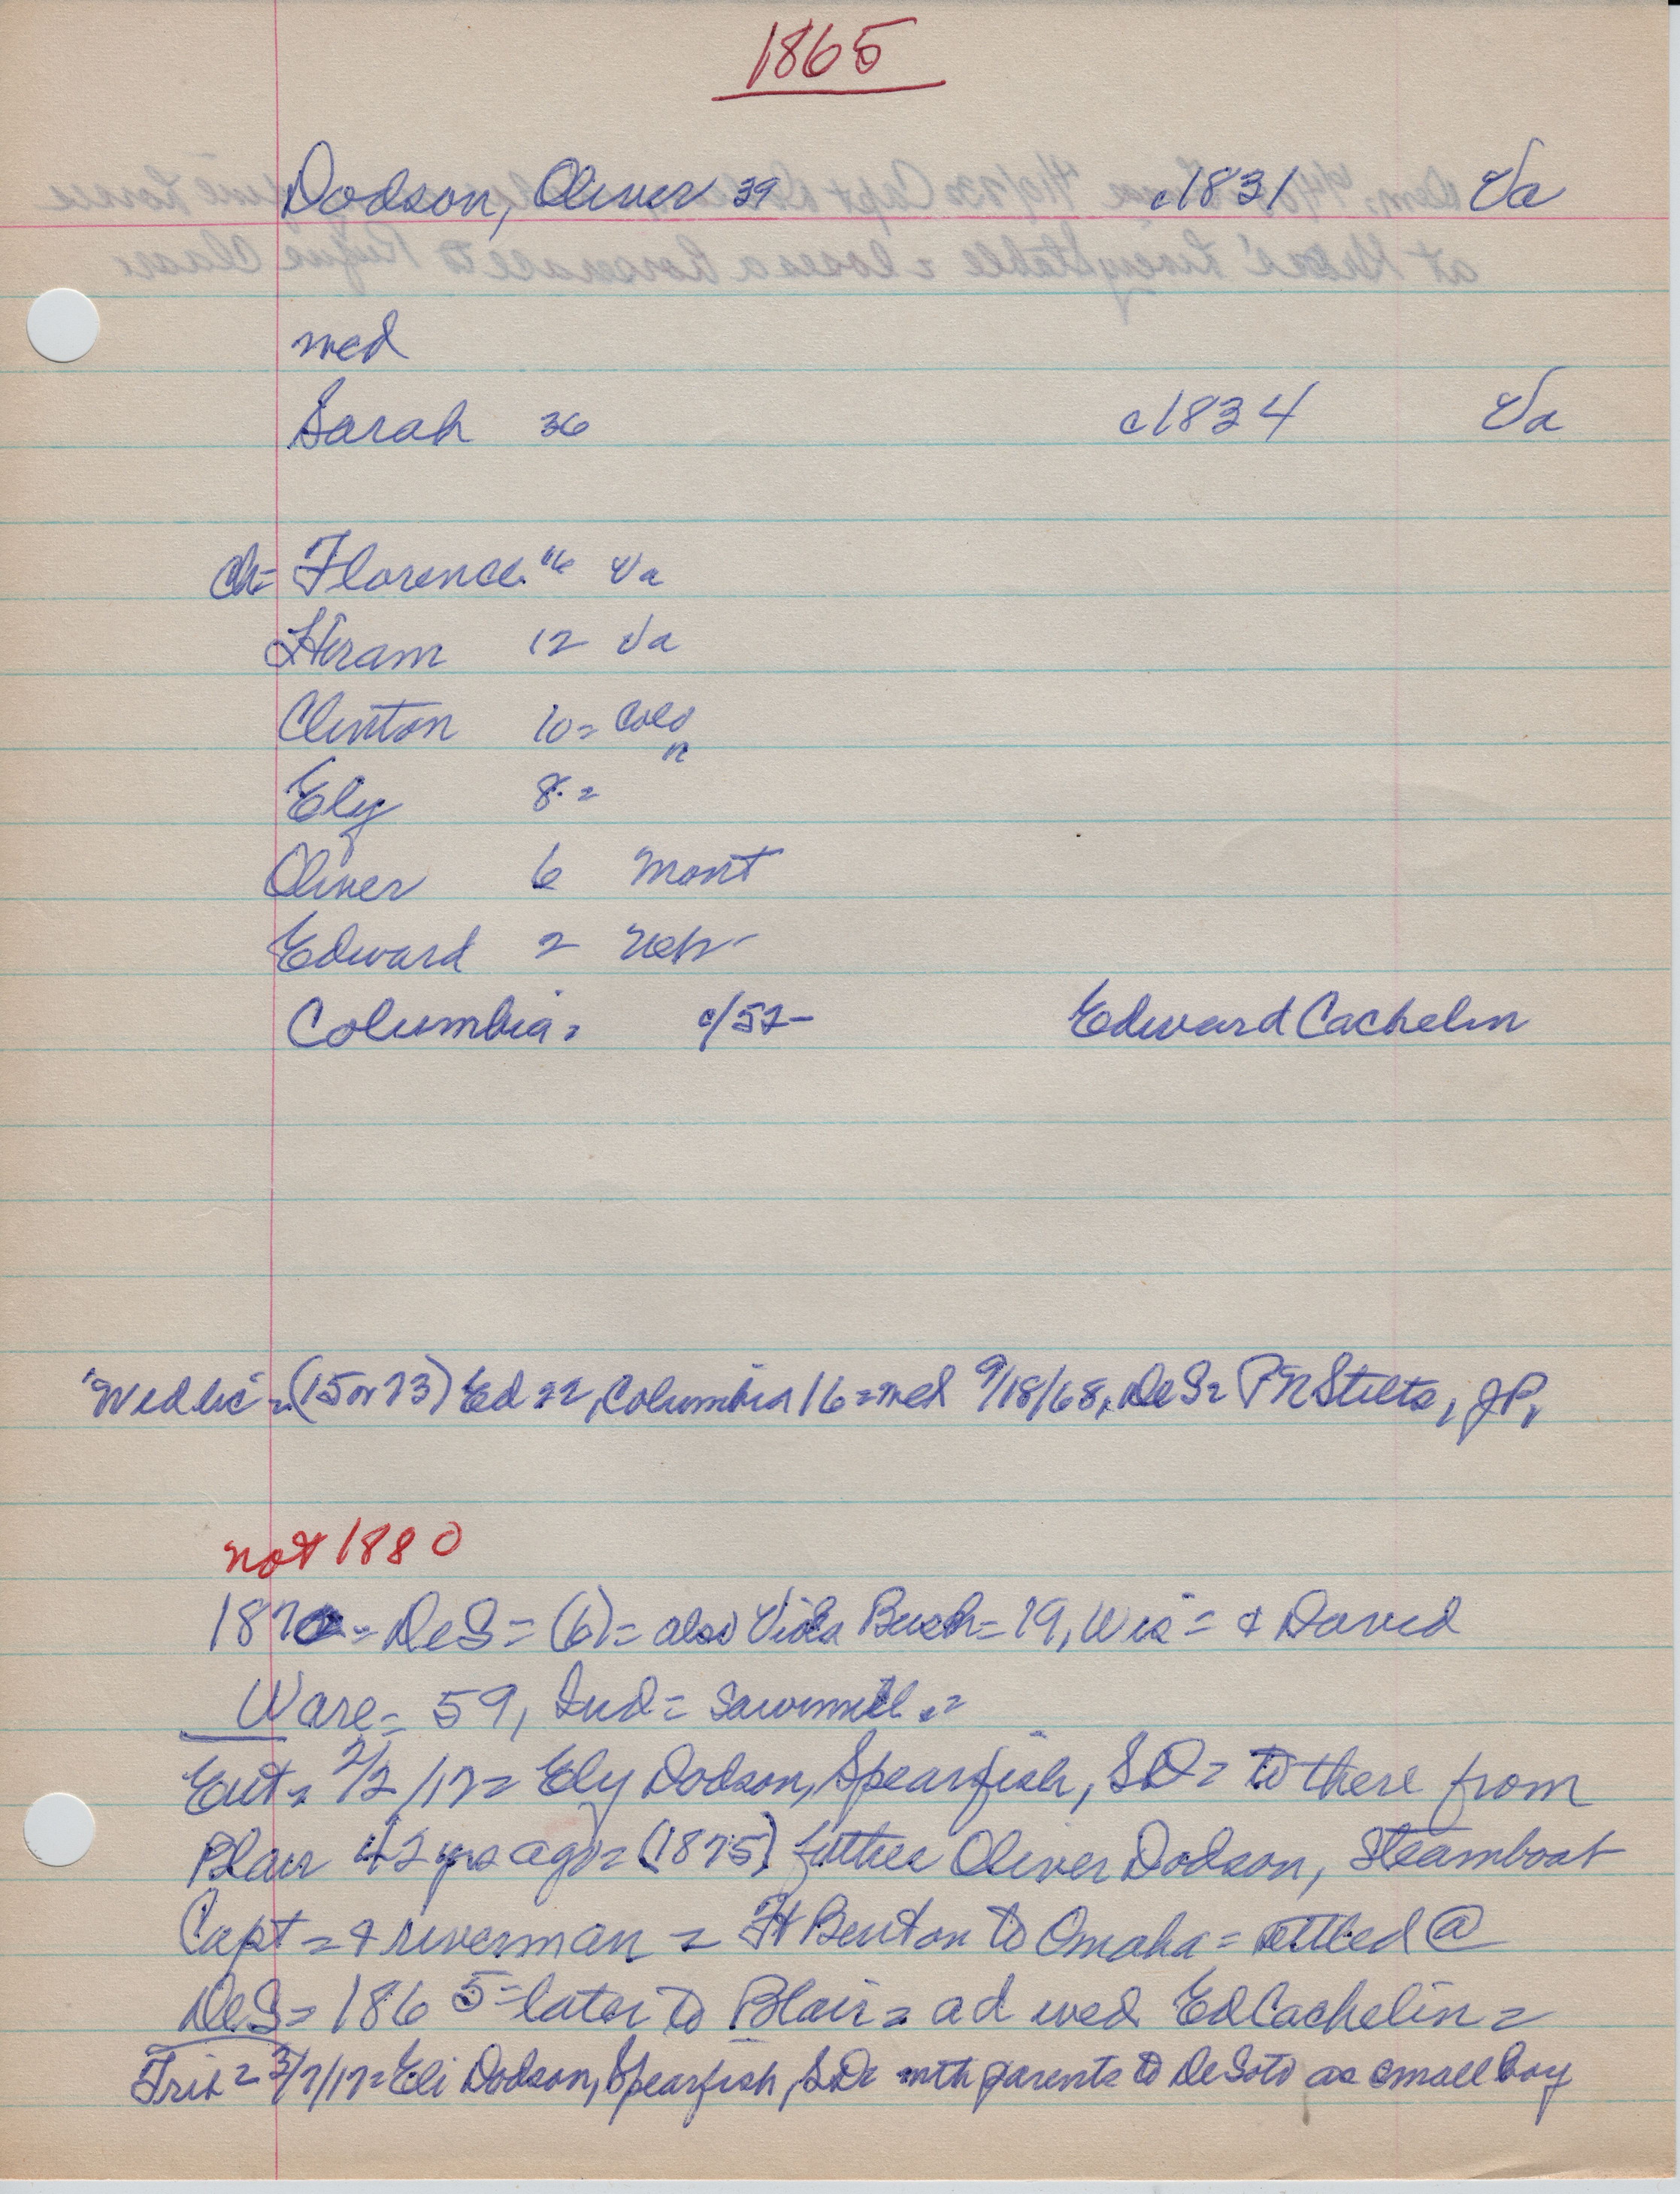 1865
Dodson, Oliver 39 c1831 Va
med
Sarah 36 c1834 Va
Ch= Florence 16 Va
Hiram 12 Va
Clinton 10= Colo
Ely 8= "
Oliver 6 Mont
Edward 2 Neb-
Columbia= c/52- Edward Cachelin
"Wed lic"= (15 or 73) Ed 22, Columbia 16= med 9/18/68, DeS= Stilts, JP,
not 1880
1870= DeS= (6)= also Viola Bush= 19, Wis= & David
Ware= 59, Ind= Sawmill=
Ent= 2/2/17= Ely Dodson, Spearfish, SD= to there from
Blair 42 yrs ago= (1875) father Oliver Dodson, Steamboat
Capt= & riverman= Ft Benton to Omaha= settled @
DeS= 1865= later to Blair= ad wed Ed Cachelin=
Trib= 3/7/17= Eli Dodson, Spearfish, SD= with parents to DeSoto as small boy